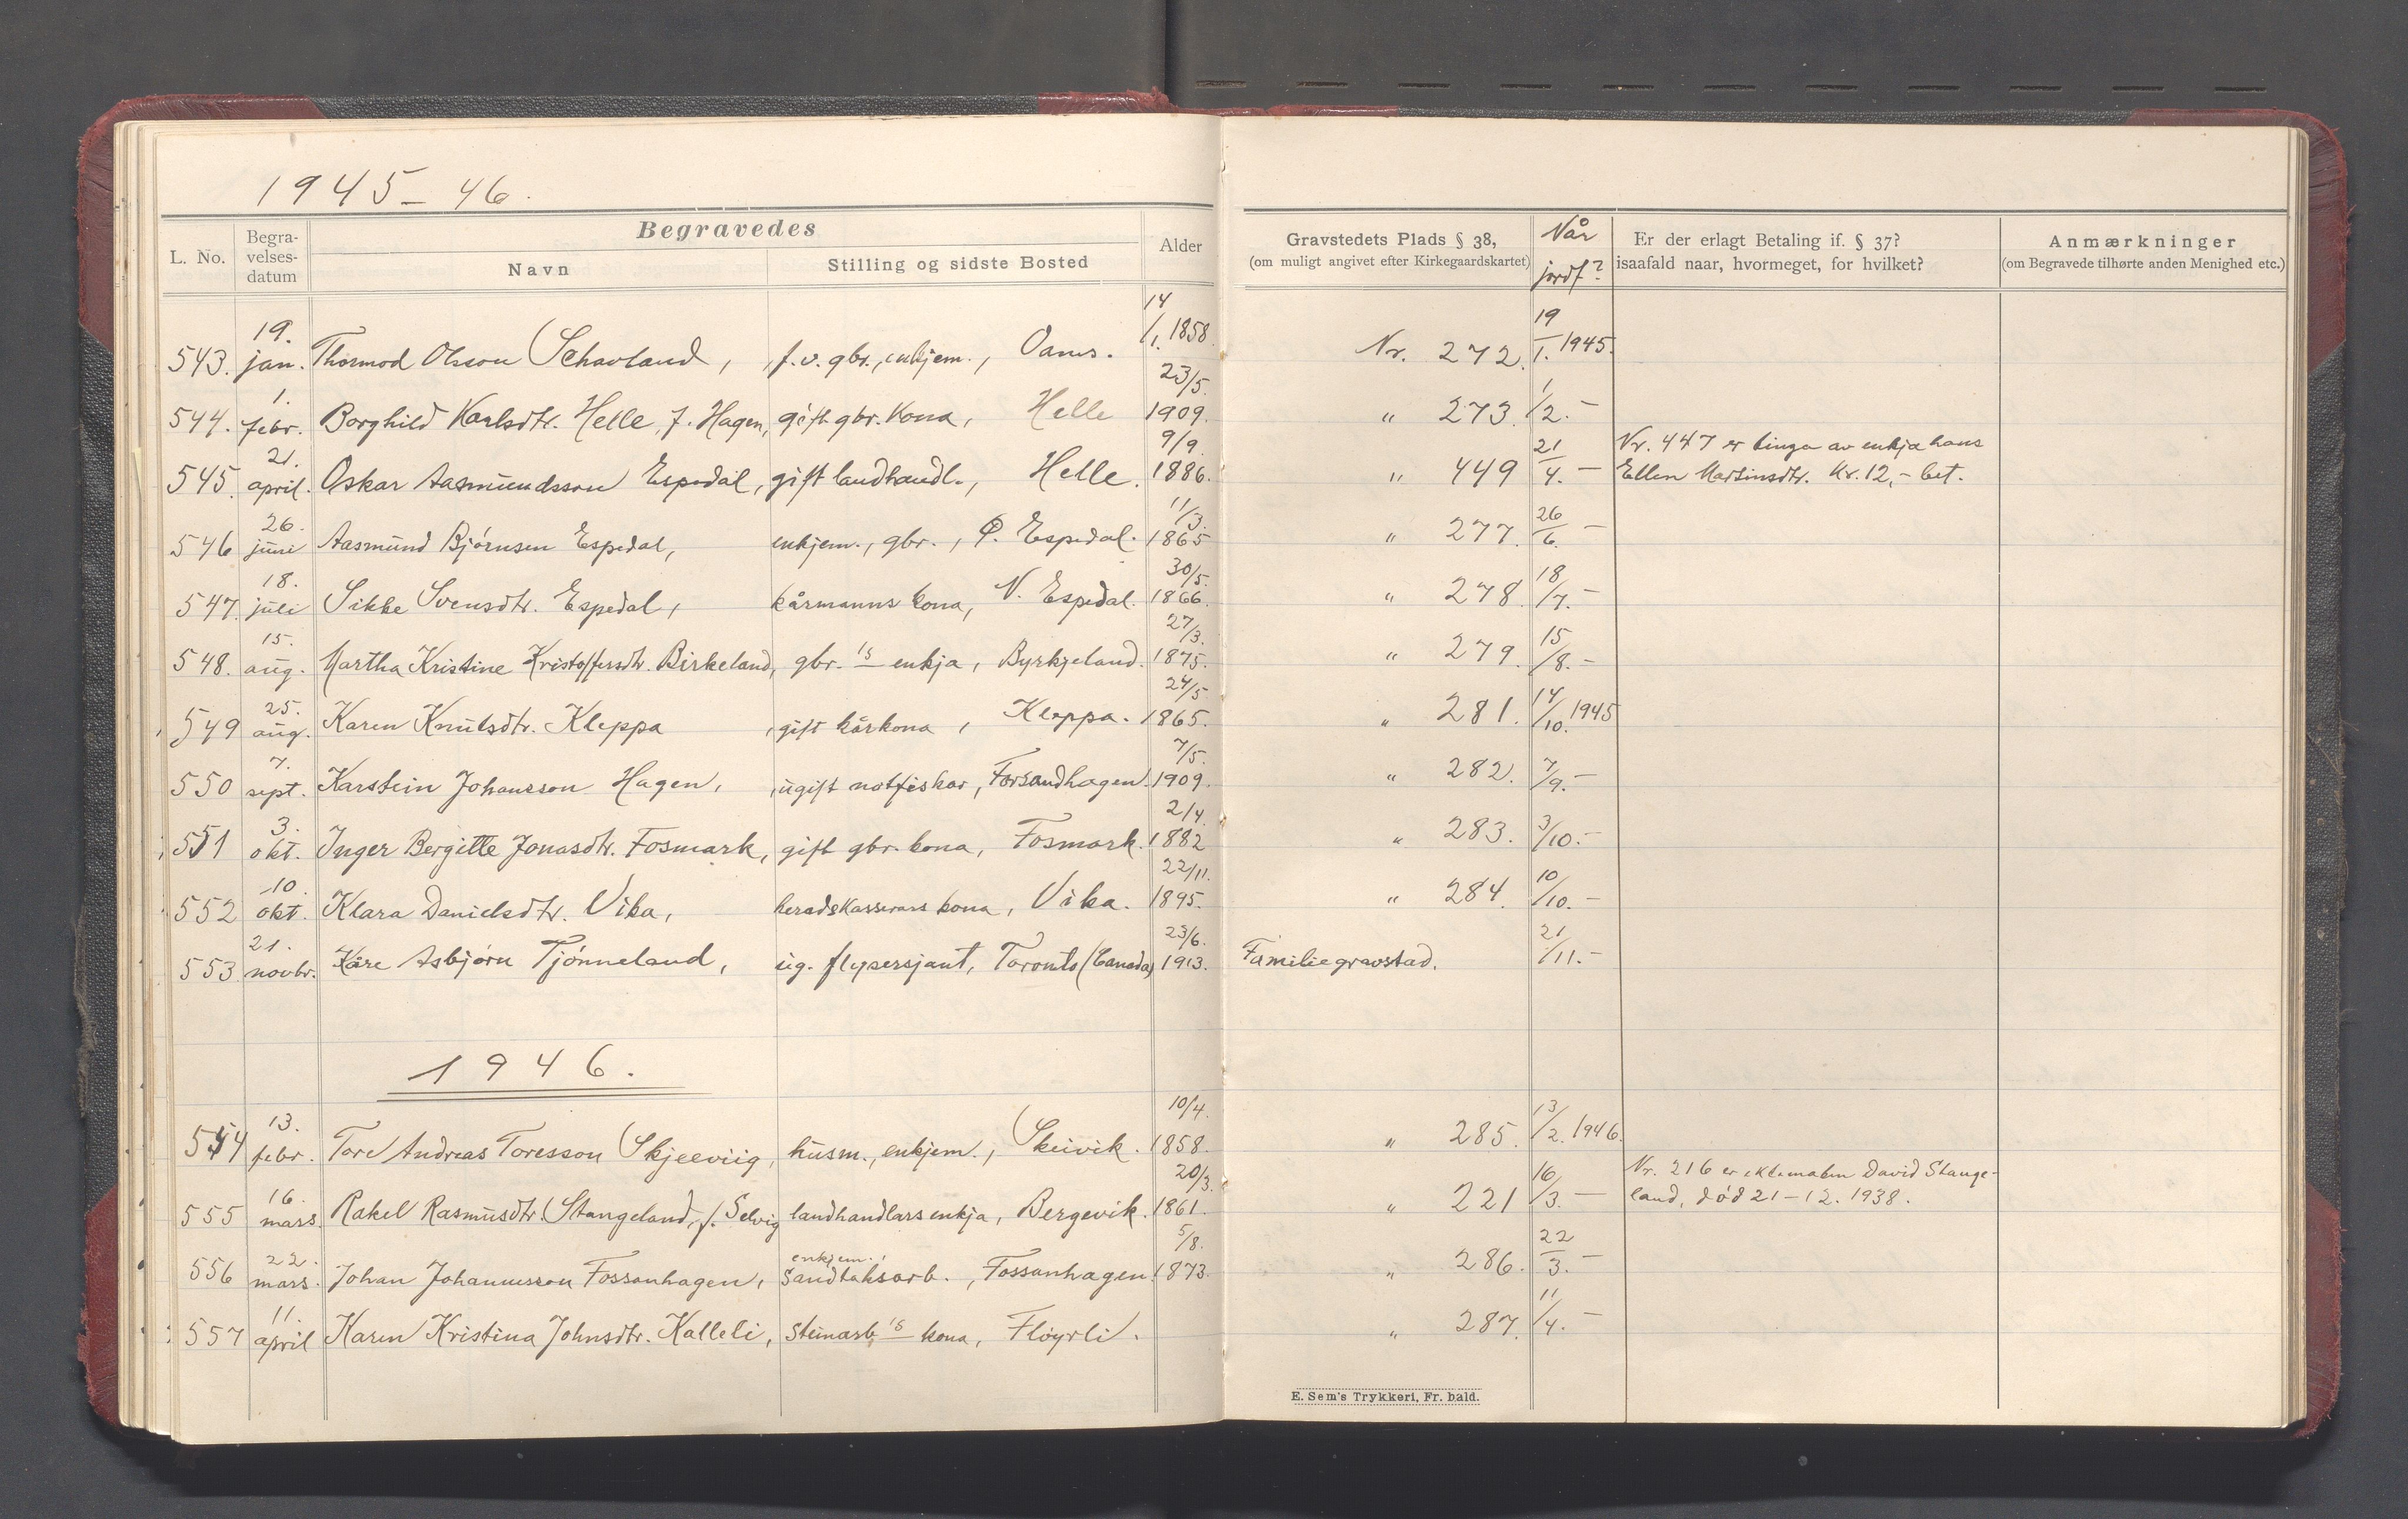 1945-46.
Begravedes
L. No. Begravelsesdatum Navn Stilling og sidste Bosted Alder Gravstedets Plads § 38, (om muligt angivet efter Kirkegaardskartet) Når jordf? Er der erlagt Betaling if. § 37? isaafald naar, hvormeget, for hvilket? Anmærkninger (om Begravede tilhørte anden Menighed etc.)
543. 19. jan. Thormod Olsson Schavland, f.v. gbr., enkjem., Oanes. 14/1. 1858. Nr. 272. 19/1. 1945.
544. 1. febr. Borghild Karlsdtr. Helle, f. Hagen, gift gbr. kona, Helle 23/5. 1909. " 273. 1/2. -
545. 21. april. Oskar Aasmundsson Espedal, gift landhandl., Helle. 9/9. 1886. " 449 21/4. - Nr. 447 er tinga av enkja hans
Ellen Martinsdtr. Kr. 12,- bet.
546 26. juni Aasmund Bjørnsen Espedal, enkjem., gbr., Ø. Espedal. 11/3. 1865 " 277. 26/6. -
547. 18. juli Sikke Svensdtr. Espedal, kårmanns kona, N. Espedal. 30/5. 1866. " 278. 18/7. -
548. 15. aug. Martha Kristine Kristoffersdtr. Birkeland, gbr. 's enkja, Byrkjeland. 27/3. 1875. " 279. 15/8. -
549 25. aug. Karen Knutsdtr. Kleppa, gift kårkona, Kleppa. 24/5 1865. " 281. 14/10. 1945
550 7. sept. Karstein Johansson Hagen, ugift notfiskar, Forsandhagen. 7/5. 1909. " 282. 7/9. -
551 3. okt. Inger Bergitte Jonasdtr. Fosmark, gift gbr. kona, Fosmark. 2/4. 1882 " 283. 3/10. -
552 10. okt. Klara Danielsdtr. Vika, heradskasserars kona, Vika. 22/11. 1895. " 284. 10/10. -
553 21. novbr. Kåre Asbjørn Tjønneland, ug. flysersjant, Toronto (Canada) 23/6. 1913. Familiegravstad. 21/11. -
1946.
554 13. febr. Tore Andreas Toresson Skjeeviig, husm., enkjem., Skeivik. 10/4. 1858. " 285. 13/2. 1946.
555 16. mars. Rakel Rasmusdtr. Stangeland, f. Selvig landhandlars enkja, Bergevik. 20/3. 1861. " 221 16/3. - Nr. 216 er ektemaken David Stange-
land, død 21-12. 1938.
556 22. mars. Johan Johannesson Fossanhagen, enkjem. Sandtaksarb., Fossanhagen. 5/8. 1873. " 286. 22/3. -
557 11. april Karen Kristina Johnsdtr. Kalleli, Steinarb. 's kona, Fløyrli. " 287. 11/4. -
E. Sem's Trykkeri, Fr. hald.